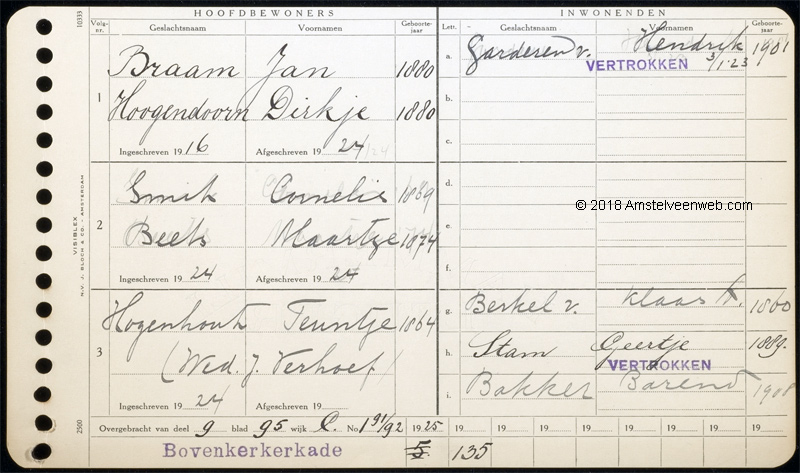 HOOFDBEWONERS
INWONENDEN
Volg-nr.
Geslachtsnaam
Voornamen
Geboorte-jaar
Lett.
Geslachtsnaam
Voornamen
Geboorte-jaar
1
Braam Jan 1880
Hoogendoorn Dirkje 1880
Ingeschreven 19 16 Afgeschreven 19 24
2
Smit Cornelis 1869
Beets Maartje 1874
Ingeschreven 19 24 Afgeschreven 19 24
3
Hogenhout Teuntje 1864
(Wed. J. Verhoef)
Ingeschreven 19 24 Afgeschreven 19
a. Garderen v. Hendrik 1901
VERTROKKEN 3/1·23
b.
c.
d.
e.
f.
g. Berkel v. Klaas 1860
h. Stam Geertje 1889.
VERTROKKEN
i. Bakker Barend
Overgebracht van deel 9 blad 95 wijk C. No 191/92 1925 19 19 19 19 19 19 19 19
Bovenkerkerkade
135
10333
VISIBLEX
N.V. J. BLOCH & CO. - AMSTERDAM
2500
© 2018 Amstelveenweb.com